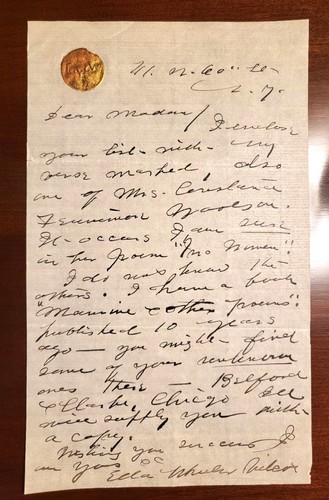 Dear Madam / I enclose
your list - with - my
verse marked, also
one of Mrs. Constance
Fennimore Woolson.
It occurs I am sure
in her poem "Two Women".
I do not know the
others. I have a book
"Maurine & other poems"
published 10 years
ago - you might find
some of your unknown
ones there - Belford
& Clarke, Chicago Ill
will supply you with
a copy.
Wishing you success I
am yours
Ella Wheeler Wilcox